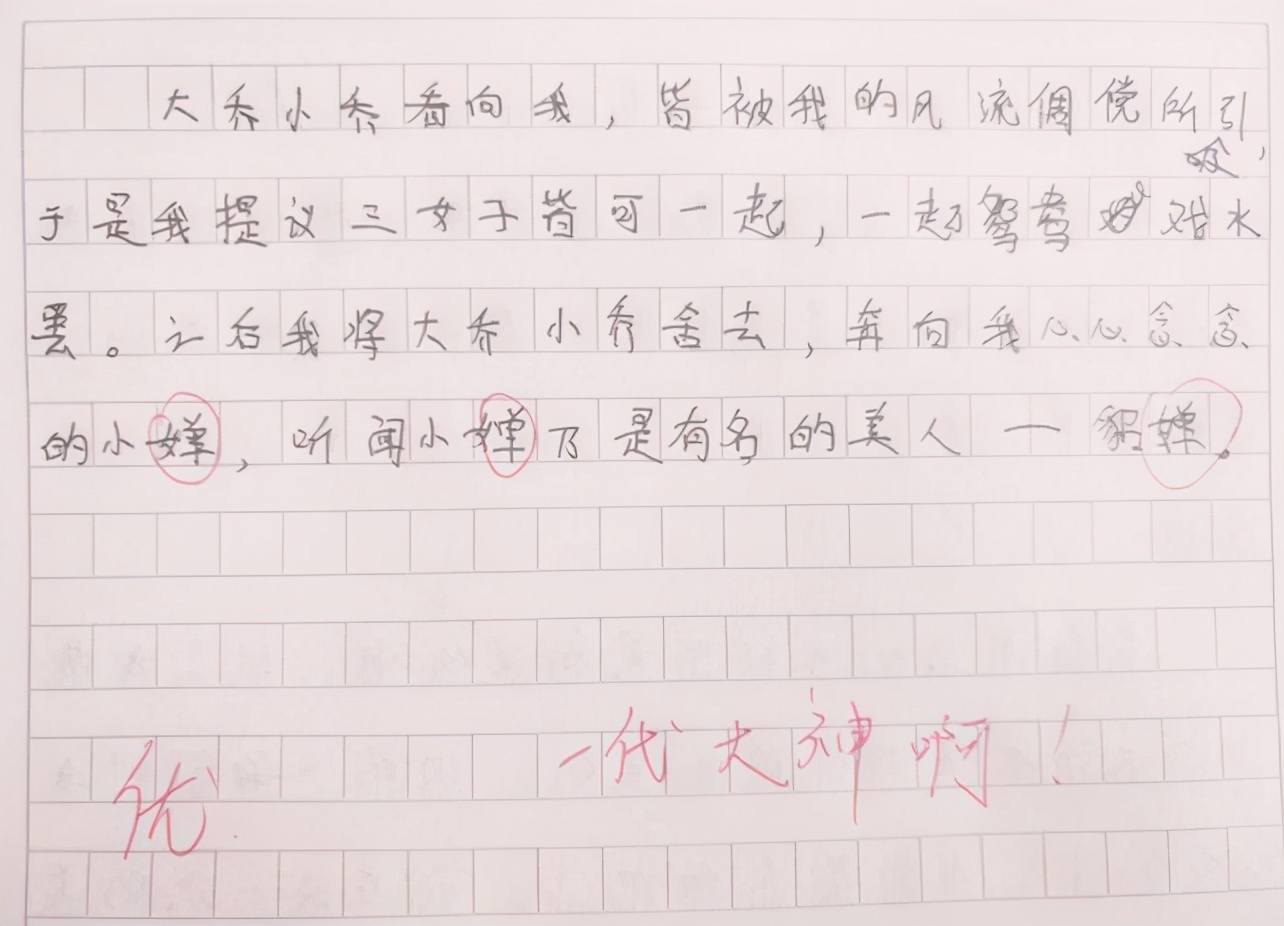 大乔小乔看向我，皆被我的风流倜傥所吸引，
于是我提议三女于皆可一起，一起鸳鸯戏水
罢。之后我将大乔小乔舍去，奔向我心心念念
的小婵，听闻小婵乃是有名的美人一貂婵。
一代大神啊！
优